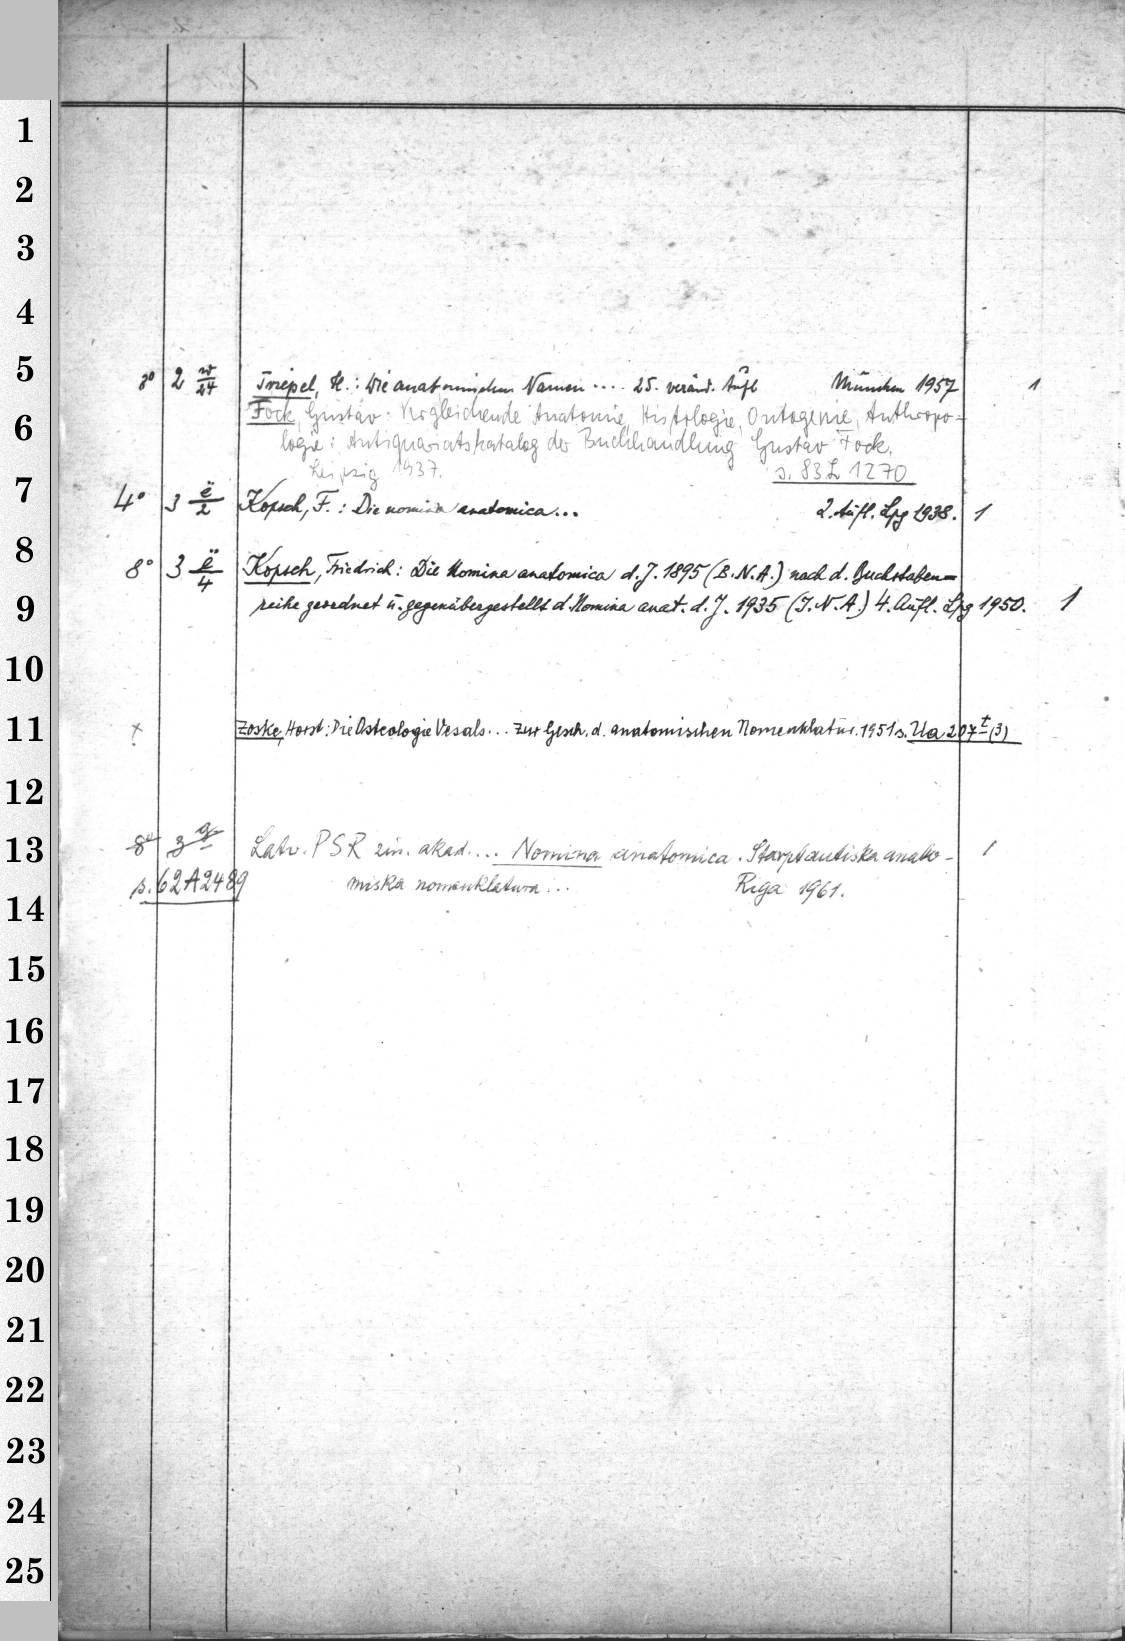 1
2
3
4
5
8° 2 w/24 Triepel, H.: Die anatomischen Namen .... 25. veränd. Aufl München 1957 1
Fock, Gustav: Vergleichende Anatomie, Histologie, Ontogenie, Anthropo=
6
logie: Antiquariatskatalog der Buchhandlung Gustav Fock.
Leipzig 1937. s. 83 L 1270
7
4° 3 ë/2 Kopsch, F.: Die nomina anatomica... 2. Aufl. Lpg 1938. 1
8
8° 3 ë/4 Kopsch, Friedrich: Die Nomina anatomica d. J. 1895 (B.N.A.) nach d. Buchstaben=
9
reihe geordnet u. gegenübergestellt d. Nomina anat. d. J. 1935 (J.N.A.) 4. Aufl. Lpg 1950. 1
10
11
x Zoske, Horst: Die Osteologie Vesals... Zur Gesch. d. anatomischen Nomenklatur. 1951 s. Ua 207 t (3)
12
13
8° 3 Latv. PSR zin. akad.... Nomina anatomica. Starptautiska anato- 1
s. 62 A 2489 miskā nomenklatura... Rīgā 1961.
14
15
16
17
18
19
20
21
22
23
24
25